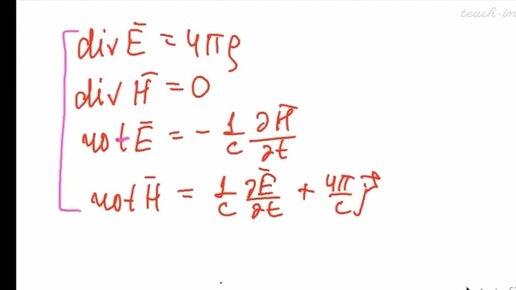 teach-in
div Ē = 4πρ
div H̄ = 0
rot Ē = - 1/c ∂H̄/∂t
rot H̄ = 1/c ∂Ē/∂t + 4π/c j⃗